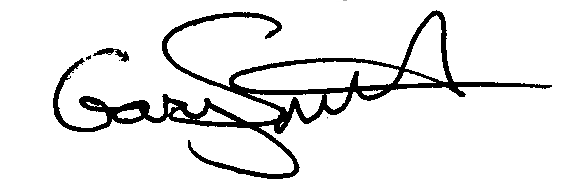 Gary Smith